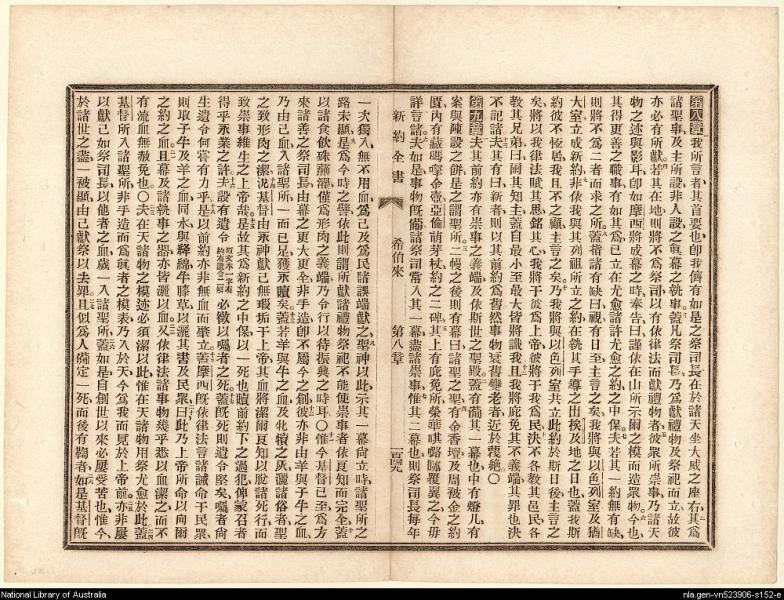 第八章我所言者其首要也卽我儕有如是之祭司長在於諸天坐大威之座右其爲
諸聖事及主所設非人設之眞幕之執事蓋凡祭司長乃爲獻禮物及祭祀而立故彼
亦必有所獻若其在地則將不爲祭司以有依律法而獻禮物者彼衆所崇事乃諸天
物之述與影耳卽如摩西將成幕之時奉告曰謹依在山所示爾之模而造衆物今也
其得更善之職事有如其爲已立在尤愈諸許尤愈之約之中保夫若其一約無有缺
則將不爲二者而求之所蓋指諸有缺曰視有日至主言之矣我將與以色列室及猶
大室立成新約非依我與其列祖所立之約在執其手導之出挨及地之日也蓋我斯
約彼不恆居我且不之顧主言之矣乃我將與以色列室共立此約於斯日後主言之
矣將以我律法賦其思銘其心我將于彼爲上帝彼將于我爲民決不各教其邑民各
教其兄弟曰爾其知主蓋自最小至最大皆將識我且我將庇免其不義端其罪也決
不記諸夫其有曰新者則以其前約爲舊然事物衰舊變老者近於覆絕〇
第九章夫其前約亦有崇事之義端及依斯世之聖殿蓋有葡其一幕也中有燈几有
案與陳設之餅是之謂聖所二幔之後則有幕曰諸聖之聖有金香壇及周被金之約
匱內有藏嗎嗱金壺亞倫萌芽杖約之二碑其上有庇免所榮華唭嚧㗴覆翼之今毋
詳言諸夫如是事物旣備諸祭司常入其一幕盡諸崇事惟其二幕也則祭司長每年
新約全書 希伯來 第八章 一百四九
一次獨入無不用血爲己及爲民諸謬端獻之聖神以此示其一幕尙立時諸聖所之
路未顯是爲今時之譬依此則謂所獻諸禮物祭祀不能使崇事者依良知而完全蓋
以諸食飲殊蘸濯僅爲形肉之義端乃令行以待振興之時耳〇惟今基督已至爲方
來諸善之祭司長由幕之更大更全非手造卽不屬今之創彼亦非由羊與子牛之血
乃由己血入諸聖所一而已足獲永贖矣蓋若羊與牛之血及牝犢之灰灑諸俗者聖
之致形肉之潔況基督由永神獻己無瑕垢于上帝其血將潔爾良知以脫諸死行而
致崇事維生之上帝哉是故其爲新約之中保以一死也贖前約下之過犯俾蒙召者
得乎永業之許夫設有遺令必徵以囑者之死蓋旣死則遺令堅矣囑者尙
生遺令何嘗有力乎是以前約亦非無血而肇立蓋摩西旣依律法言諸誡命于民衆
則取子牛及羊之血同水與絳綿牛膝草以灑其書及民衆曰此乃上帝所命以向爾
之約之血且幕及諸執事之器亦侔灑以血又依律法諸事物幾乎悉以血潔之而不
有流血無赦免也〇夫在天諸物之模迹必須潔以此惟在天諸物用祭尤愈於此蓋
基督所入諸聖所非手造而爲眞者之模表乃入於天今爲我而見於上帝前亦非屢
以獻己如祭司長以他者之血歲一入諸聖所蓋如是自創世以來必屢受苦也惟今
於諸世之盡一被顯由己獻祭以去罪且似爲人備定一死而後有鞫者如是基督旣
National Library of Australia
nla.gen-vn523906-s152-e